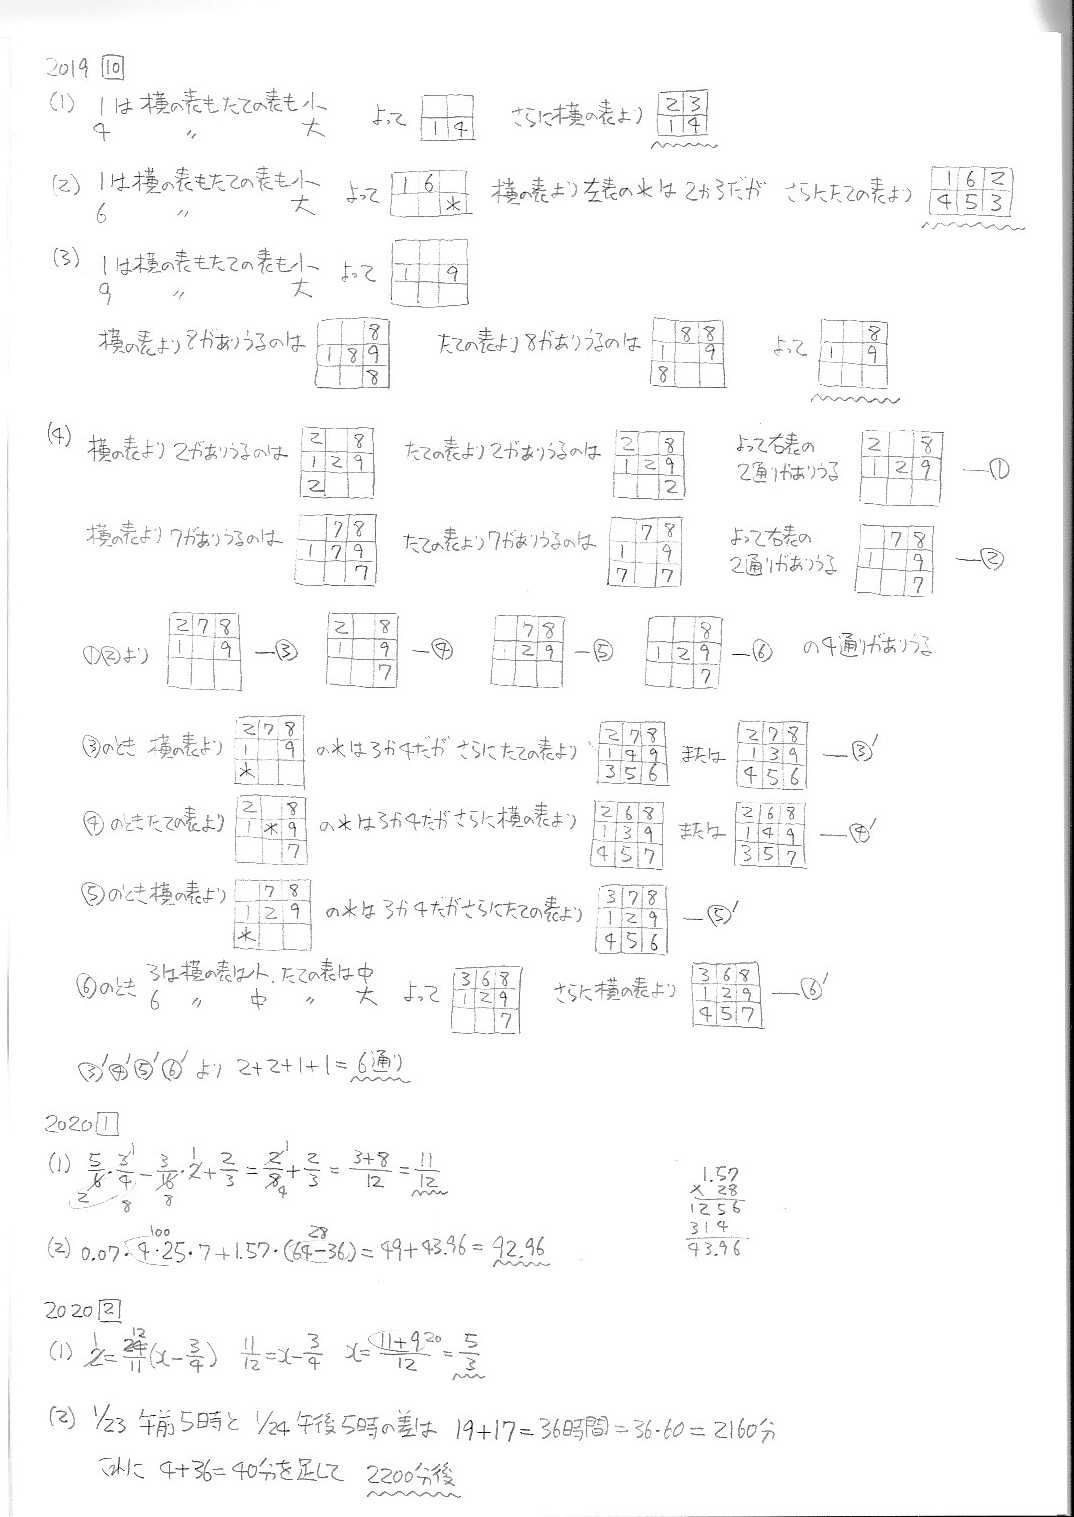 2019 10
(1) 1は横の表もたての表も小 よって さらに横の表より 2 3
4 〃 大 1 4 1 4
(2) 1は横の表もたての表も小 よって 1 6 横の表より左表の*は2か3だが さらにたての表より 1 6 2
6 〃 大 * 4 5 3
(3) 1は横の表もたての表も小 よって 1 9
9 〃 大
横の表より8がありうるのは 8 たての表より8がありうるのは 8 8 よって 8
1 8 9 1 9 1 9
8 8
(4) 横の表より2がありうるのは 2 8 たての表より2がありうるのは 2 8 よって右表の 2 8
1 2 9 1 2 9 2通りがありうる 1 2 9 —①
2 2
横の表より7がありうるのは 7 8 たての表より7がありうるのは 7 8 よって右表の 7 8
1 7 9 1 9 2通りがありうる 1 9 —②
7 7 7 7
①②より 2 7 8 2 8 7 8 8 の4通りがありうる
1 9 —③ 1 9 —④ 1 2 9 —⑤ 1 2 9 —⑥
7 7
③のとき 横の表より 2 7 8 の*は3か4だが さらにたての表より 2 7 8 または 2 7 8
1 9 1 4 9 1 3 9 —③′
* 3 5 6 4 5 6
④のときたての表より 2 8 の*は3か4だがさらに横の表より 2 6 8 または 2 6 8
1 * 9 1 3 9 1 4 9 —④′
7 4 5 7 3 5 7
⑤のとき横の表より 7 8 の*は3か4だがさらにたての表より 3 7 8
1 2 9 1 2 9 —⑤′
* 4 5 6
⑥のとき 3は横の表は小、たての表は中 よって 3 6 8 さらに横の表より 3 6 8
6 〃 中 〃 大 1 2 9 1 2 9 —⑥′
7 4 5 7
③′④′⑤′⑥′より 2+2+1+1=6通り
2020 1
(1) 5/6・3/4-3/16・2+2/3=2/8+2/3=3+8/12=11/12
1.57
× 28
1256
314
43.96
(2) 0.07・4・25・7+1.57・(64-36)=49+43.96=92.96
2020 2
(1) 2=24/11(x-3/4) 11/12=x-3/4 x=11+9/12=5/3
(2) 1/23 午前5時と 1/24 午後5時の差は 19+17=36時間=36・60=2160分
これに 4+36=40分を足して 2200分後